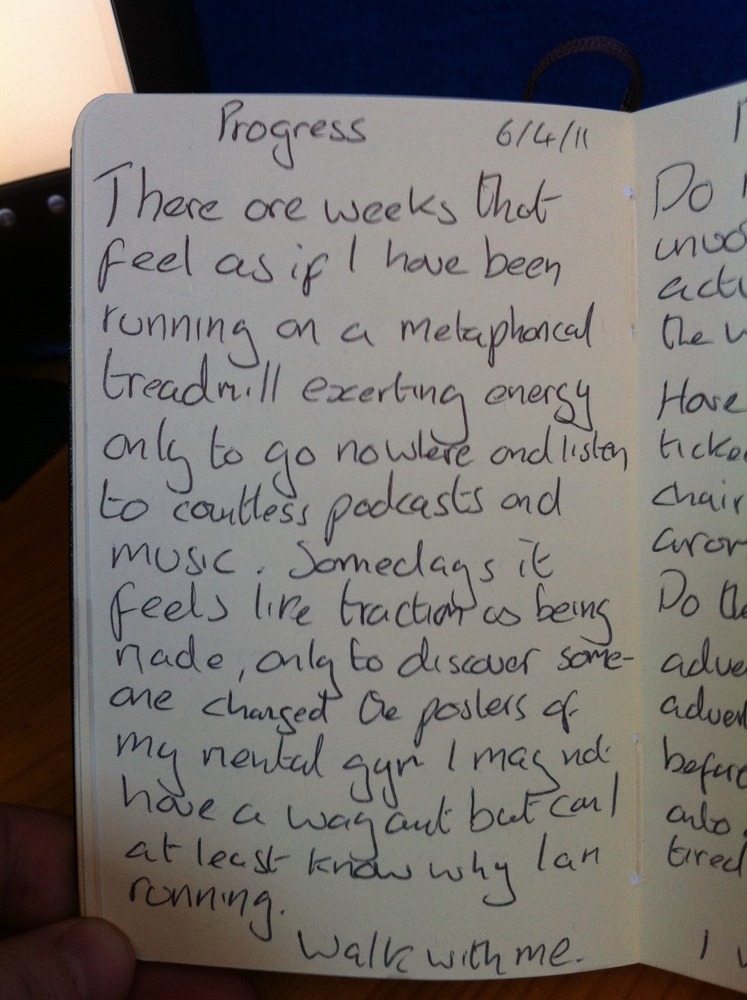 Progress 6/4/11
There are weeks that
feel as if I have been
running on a metaphorical
treadmill exerting energy
only to go nowhere and listen
to countless podcasts and
music. Somedays it
feels like traction is being
made, only to discover some-
one changed the posters of
my mental gym I may not
have a way out but can I
at least know why I am
running.
Walk with me.
Do
the
Have
chair
Do the
before
tired
I